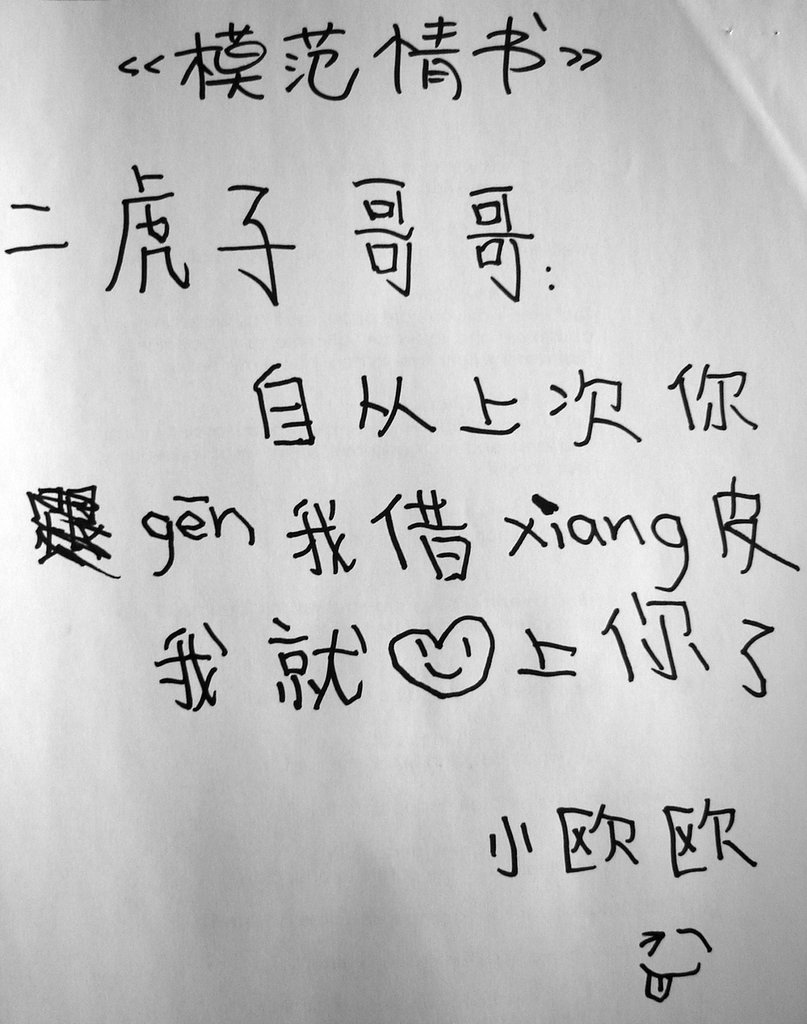 《模范情书》
二虎子哥哥:
自从上次你
gēn我借xiang皮
我就♡上你了
小欧欧